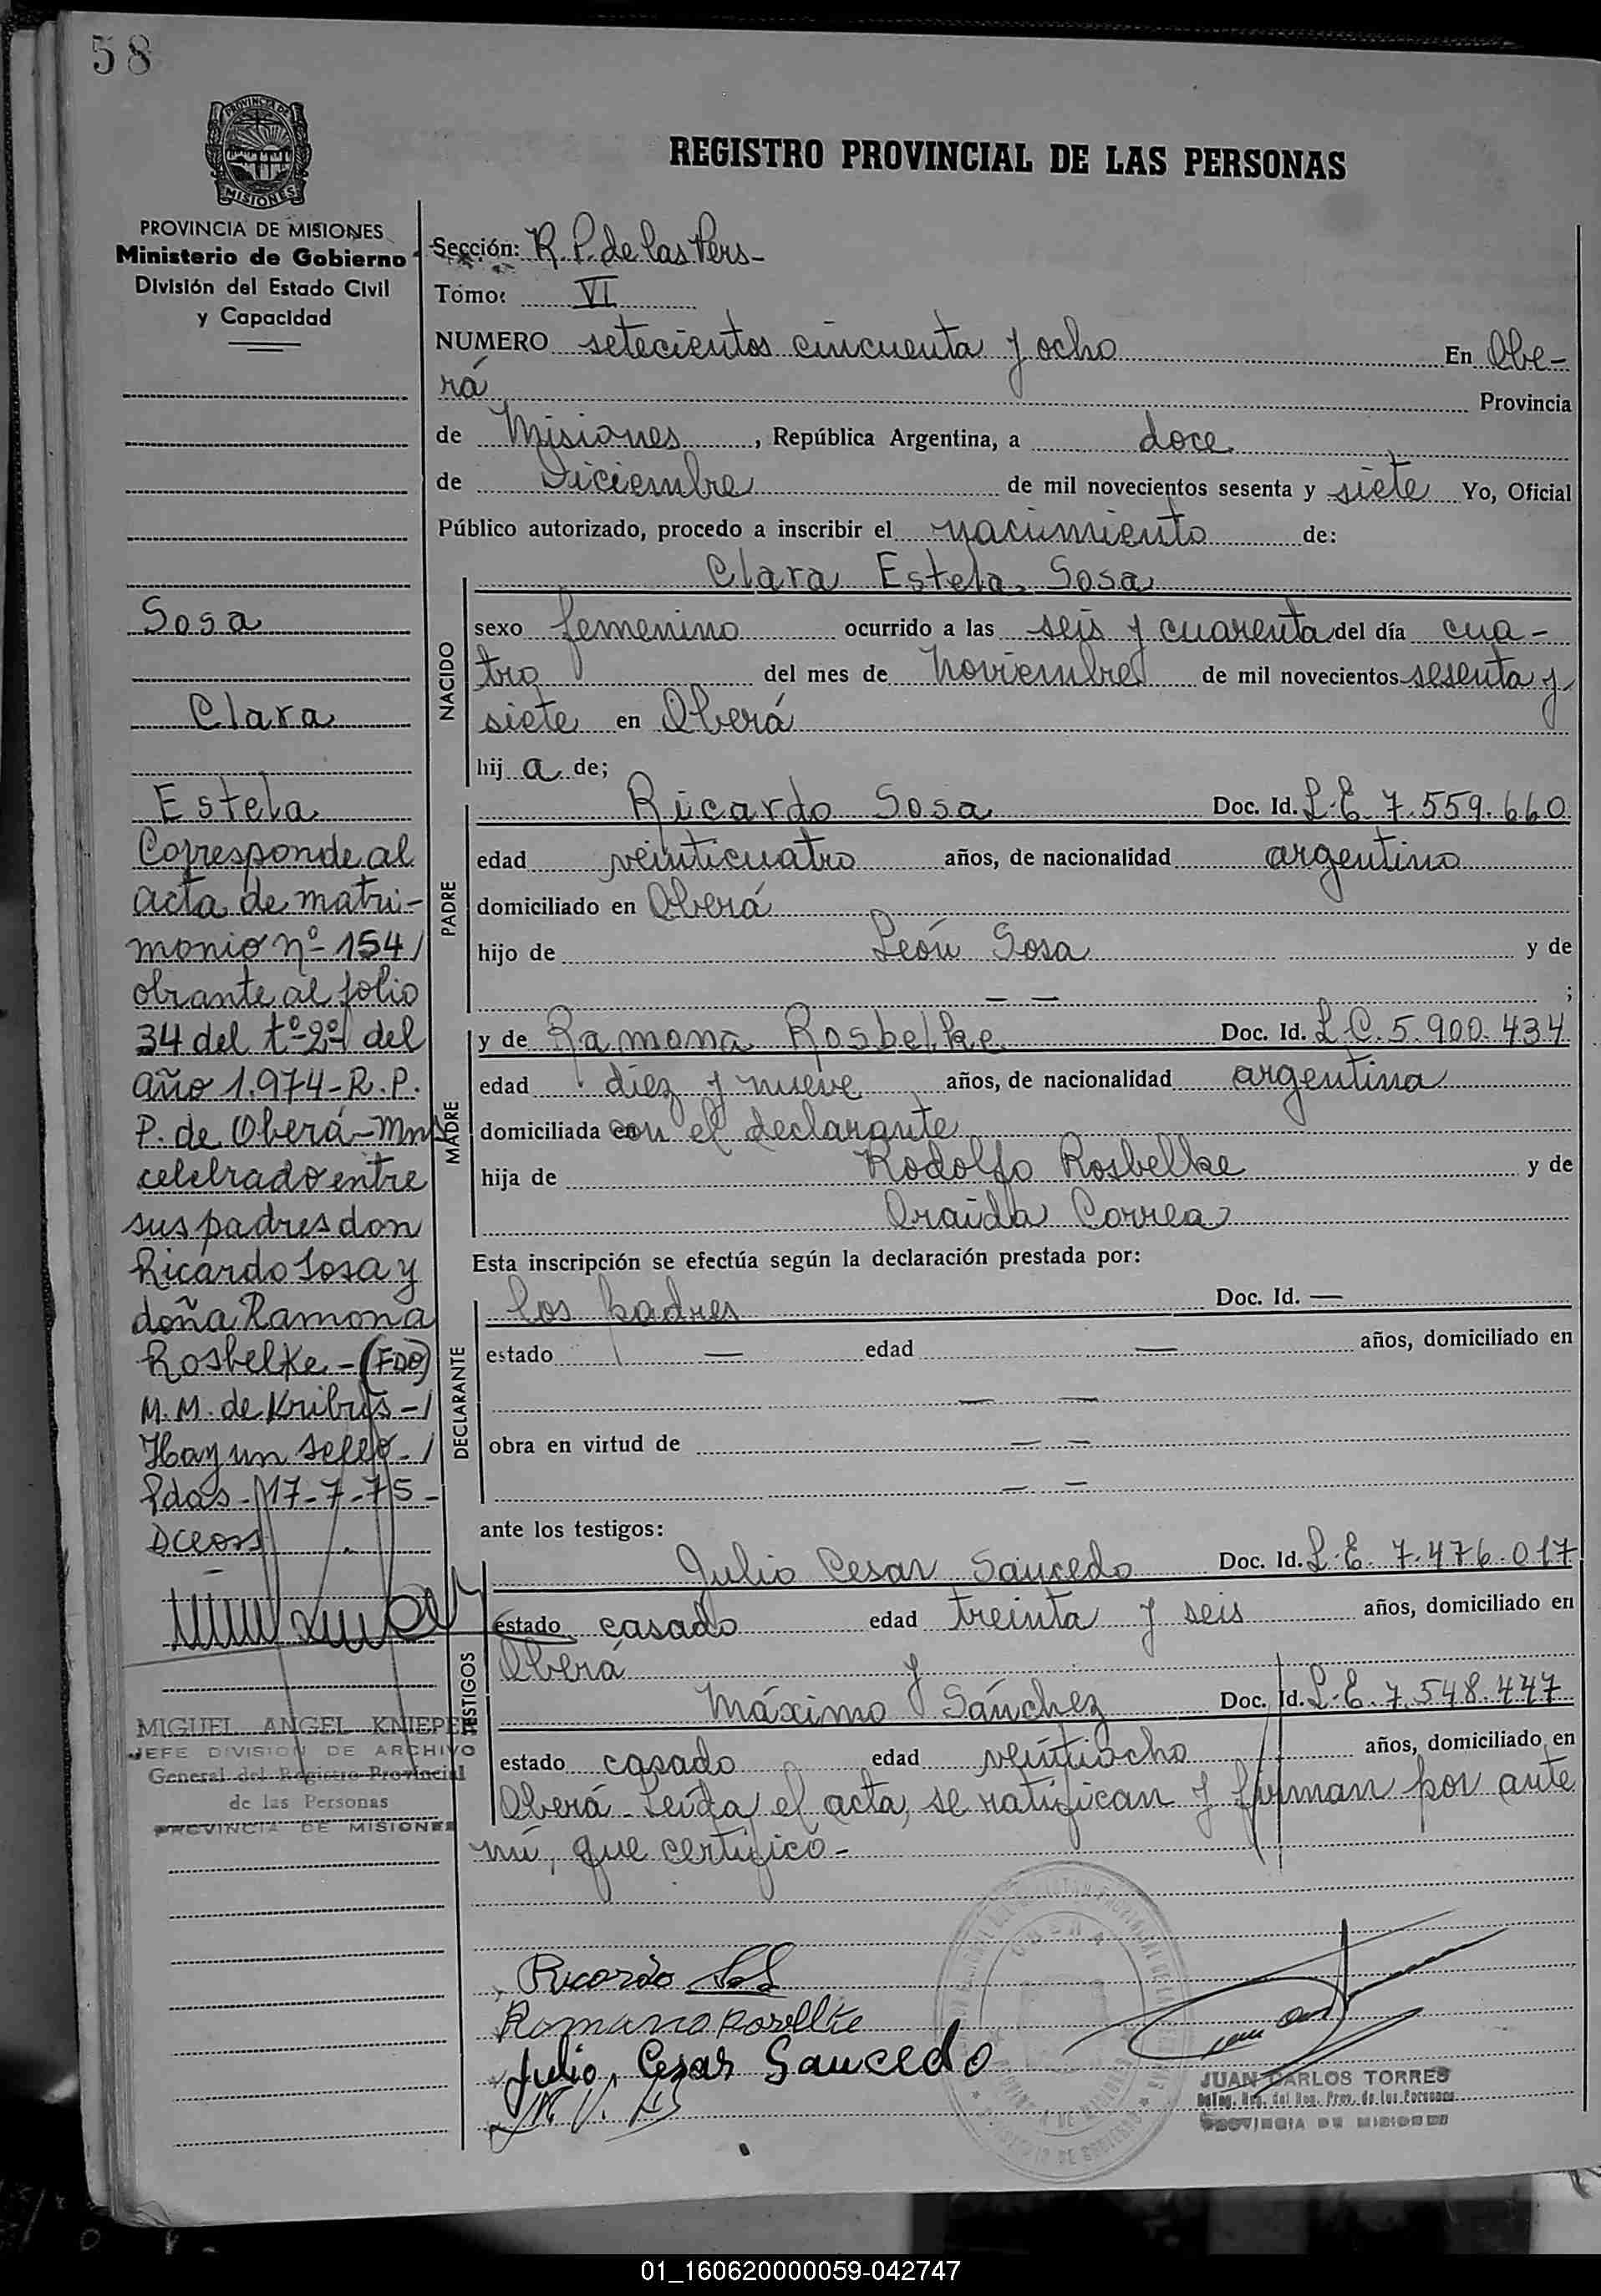 58
PROVINCIA DE
MISIONES
PROVINCIA DE MISIONES
Ministerio de Gobierno
División del Estado Civil
y Capacidad
Sosa
Clara
Estela
Corresponde al
acta de matri-
monio nº 154/
obrante al folio
34 del tº 2º del
año 1.974-R.P.
P. de Oberá-Mns
celebrado entre
sus padres don
Ricardo Sosa y
doña Ramona
Rosbelke-(FDO)
M.M. de Kribus-/
Hay un sello-/
Pdas-17-7-75-
MIGUEL ANGEL KNIEPER
JEFE DIVISION DE ARCHIVO
General del Registro Provincial
de las Personas
PROVINCIA DE MISIONES
REGISTRO PROVINCIAL DE LAS PERSONAS
Sección: R. P. de las Pers-
Tomo: VI
NUMERO setecientos cincuenta y ocho En Obe-
rá Provincia
de Misiones, República Argentina, a doce
de Diciembre de mil novecientos sesenta y siete Yo, Oficial
Público autorizado, procedo a inscribir el nacimiento de:
Clara Estela Sosa
NACIDO
sexo femenino ocurrido a las seis y cuarenta del día cua-
tro del mes de Noviembre de mil novecientos sesenta y
siete en Oberá
hij a de;
PADRE
Ricardo Sosa Doc. Id. L.E. 7.559.660
edad veinticuatro años, de nacionalidad argentino
domiciliado en Oberá
hijo de León Sosa y de
— — ;
MADRE
y de Ramona Rosbelke Doc. Id. L.C. 5.900.434
edad diez y nueve años, de nacionalidad argentina
domiciliada con el declarante
hija de Rodolfo Rosbelke y de
Oraida Correa
Esta inscripción se efectúa según la declaración prestada por:
DECLARANTE
los padres Doc. Id. —
estado — edad — años, domiciliado en
— —
obra en virtud de — —
— —
ante los testigos:
TESTIGOS
Julio Cesar Saucedo Doc. Id. L.E. 7.476.017
estado casado edad treinta y seis años, domiciliado en
Oberá y
Máximo Sánchez Doc. Id. L.E. 7.548.447
estado casado edad veintiocho años, domiciliado en
Oberá. Leída el acta, se ratifican y firman por ante
mí, que certifico-
Ricardo
Ramona Rosbelke
Julio Cesar Saucedo
JUAN CARLOS TORRES
PROVINCIA DE MISIONES
01_160620000059-042747